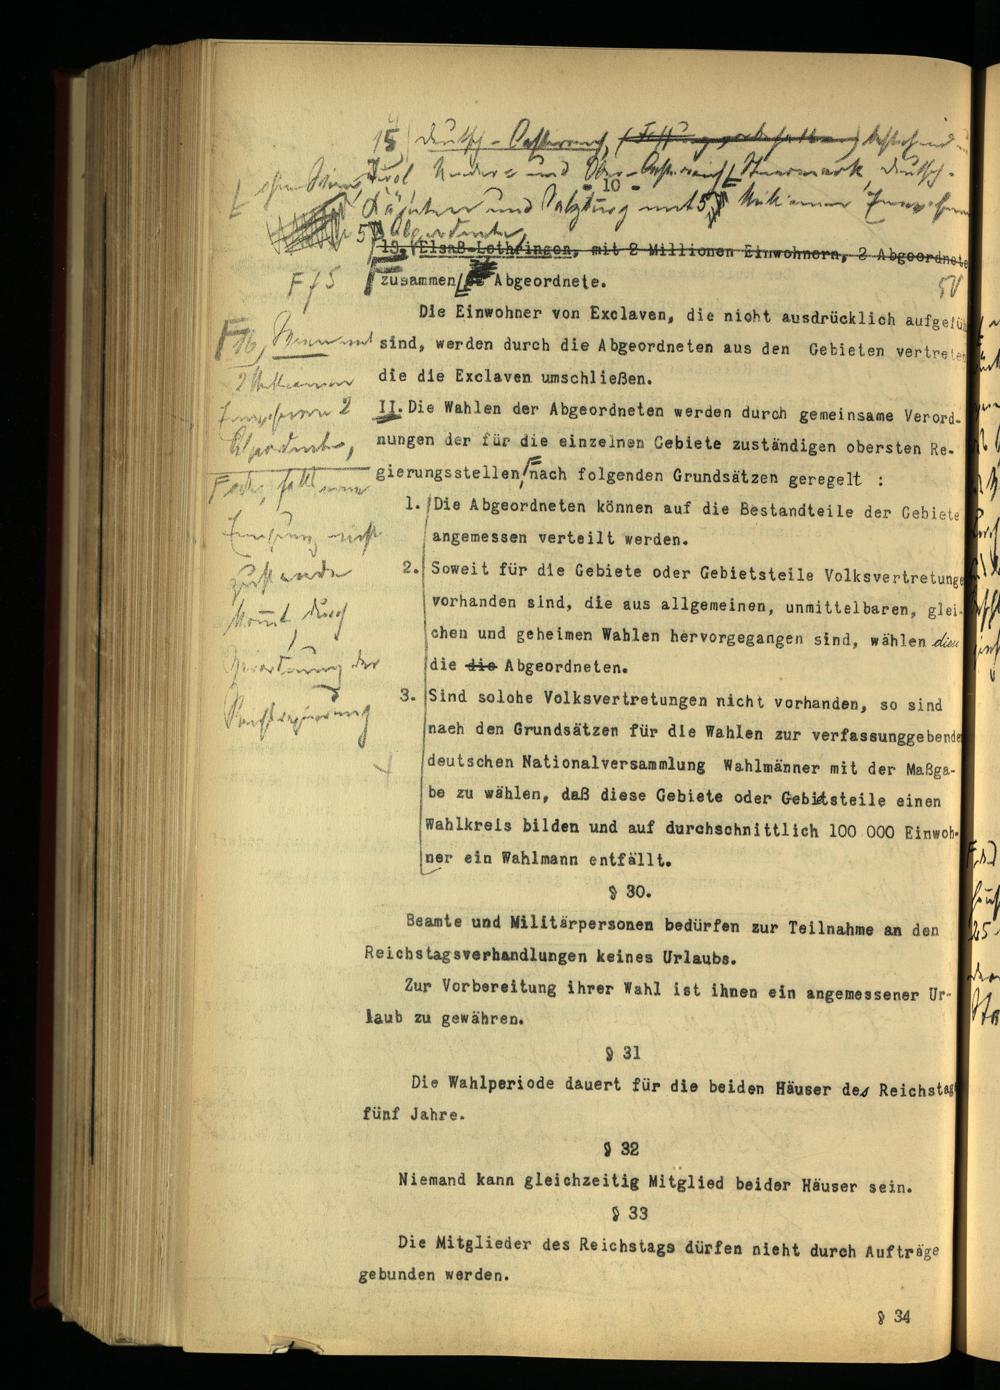 15) Deutsch-Oesterreich, bestehend
ohne Wien, Tirol, Nieder- und Ober-Oesterreich, Steiermark, Deutsch-
- 10 -
Kärnten und Salzburg mit 5 Millionen Einwohnern
5 Abgeordnete,
13. Elsaß-Lothringen, mit 2 Millionen Einwohnern, 2 Abgeordnete
zusammen Abgeordnete.
Die Einwohner von Exclaven, die nicht ausdrücklich aufgefü
sind, werden durch die Abgeordneten aus den Gebieten vertreten
die die Exclaven umschließen.
II. Die Wahlen der Abgeordneten werden durch gemeinsame Verord-
nungen der für die einzelnen Gebiete zuständigen obersten Re-
gierungsstellen nach folgenden Grundsätzen geregelt :
1. Die Abgeordneten können auf die Bestandteile der Gebiete
angemessen verteilt werden.
2. Soweit für die Gebiete oder Gebietsteile Volksvertretunge
vorhanden sind, die aus allgemeinen, unmittelbaren, glei-
chen und geheimen Wahlen hervorgegangen sind, wählen diese
die die Abgeordneten.
3. Sind solche Volksvertretungen nicht vorhanden, so sind
nach den Grundsätzen für die Wahlen zur verfassunggebende
deutschen Nationalversammlung Wahlmänner mit der Maßga-
be zu wählen, daß diese Gebiete oder Gebietsteile einen
Wahlkreis bilden und auf durchschnittlich 100 000 Einwoh-
ner ein Wahlmann entfällt.
16, Wien mit
2 Millionen
Einwohnern 2
Abgeordnete,
falls eine
Einigung nicht
zustande
kommt, durch
Verordnung der
Reichsregierung
§ 30.
Beamte und Militärpersonen bedürfen zur Teilnahme an den
Reichstagsverhandlungen keines Urlaubs.
Zur Vorbereitung ihrer Wahl ist ihnen ein angemessener Ur-
laub zu gewähren.
§ 31
Die Wahlperiode dauert für die beiden Häuser des Reichstags
fünf Jahre.
§ 32
Niemand kann gleichzeitig Mitglied beider Häuser sein.
§ 33
Die Mitglieder des Reichstags dürfen nicht durch Aufträge
gebunden werden.
§ 34